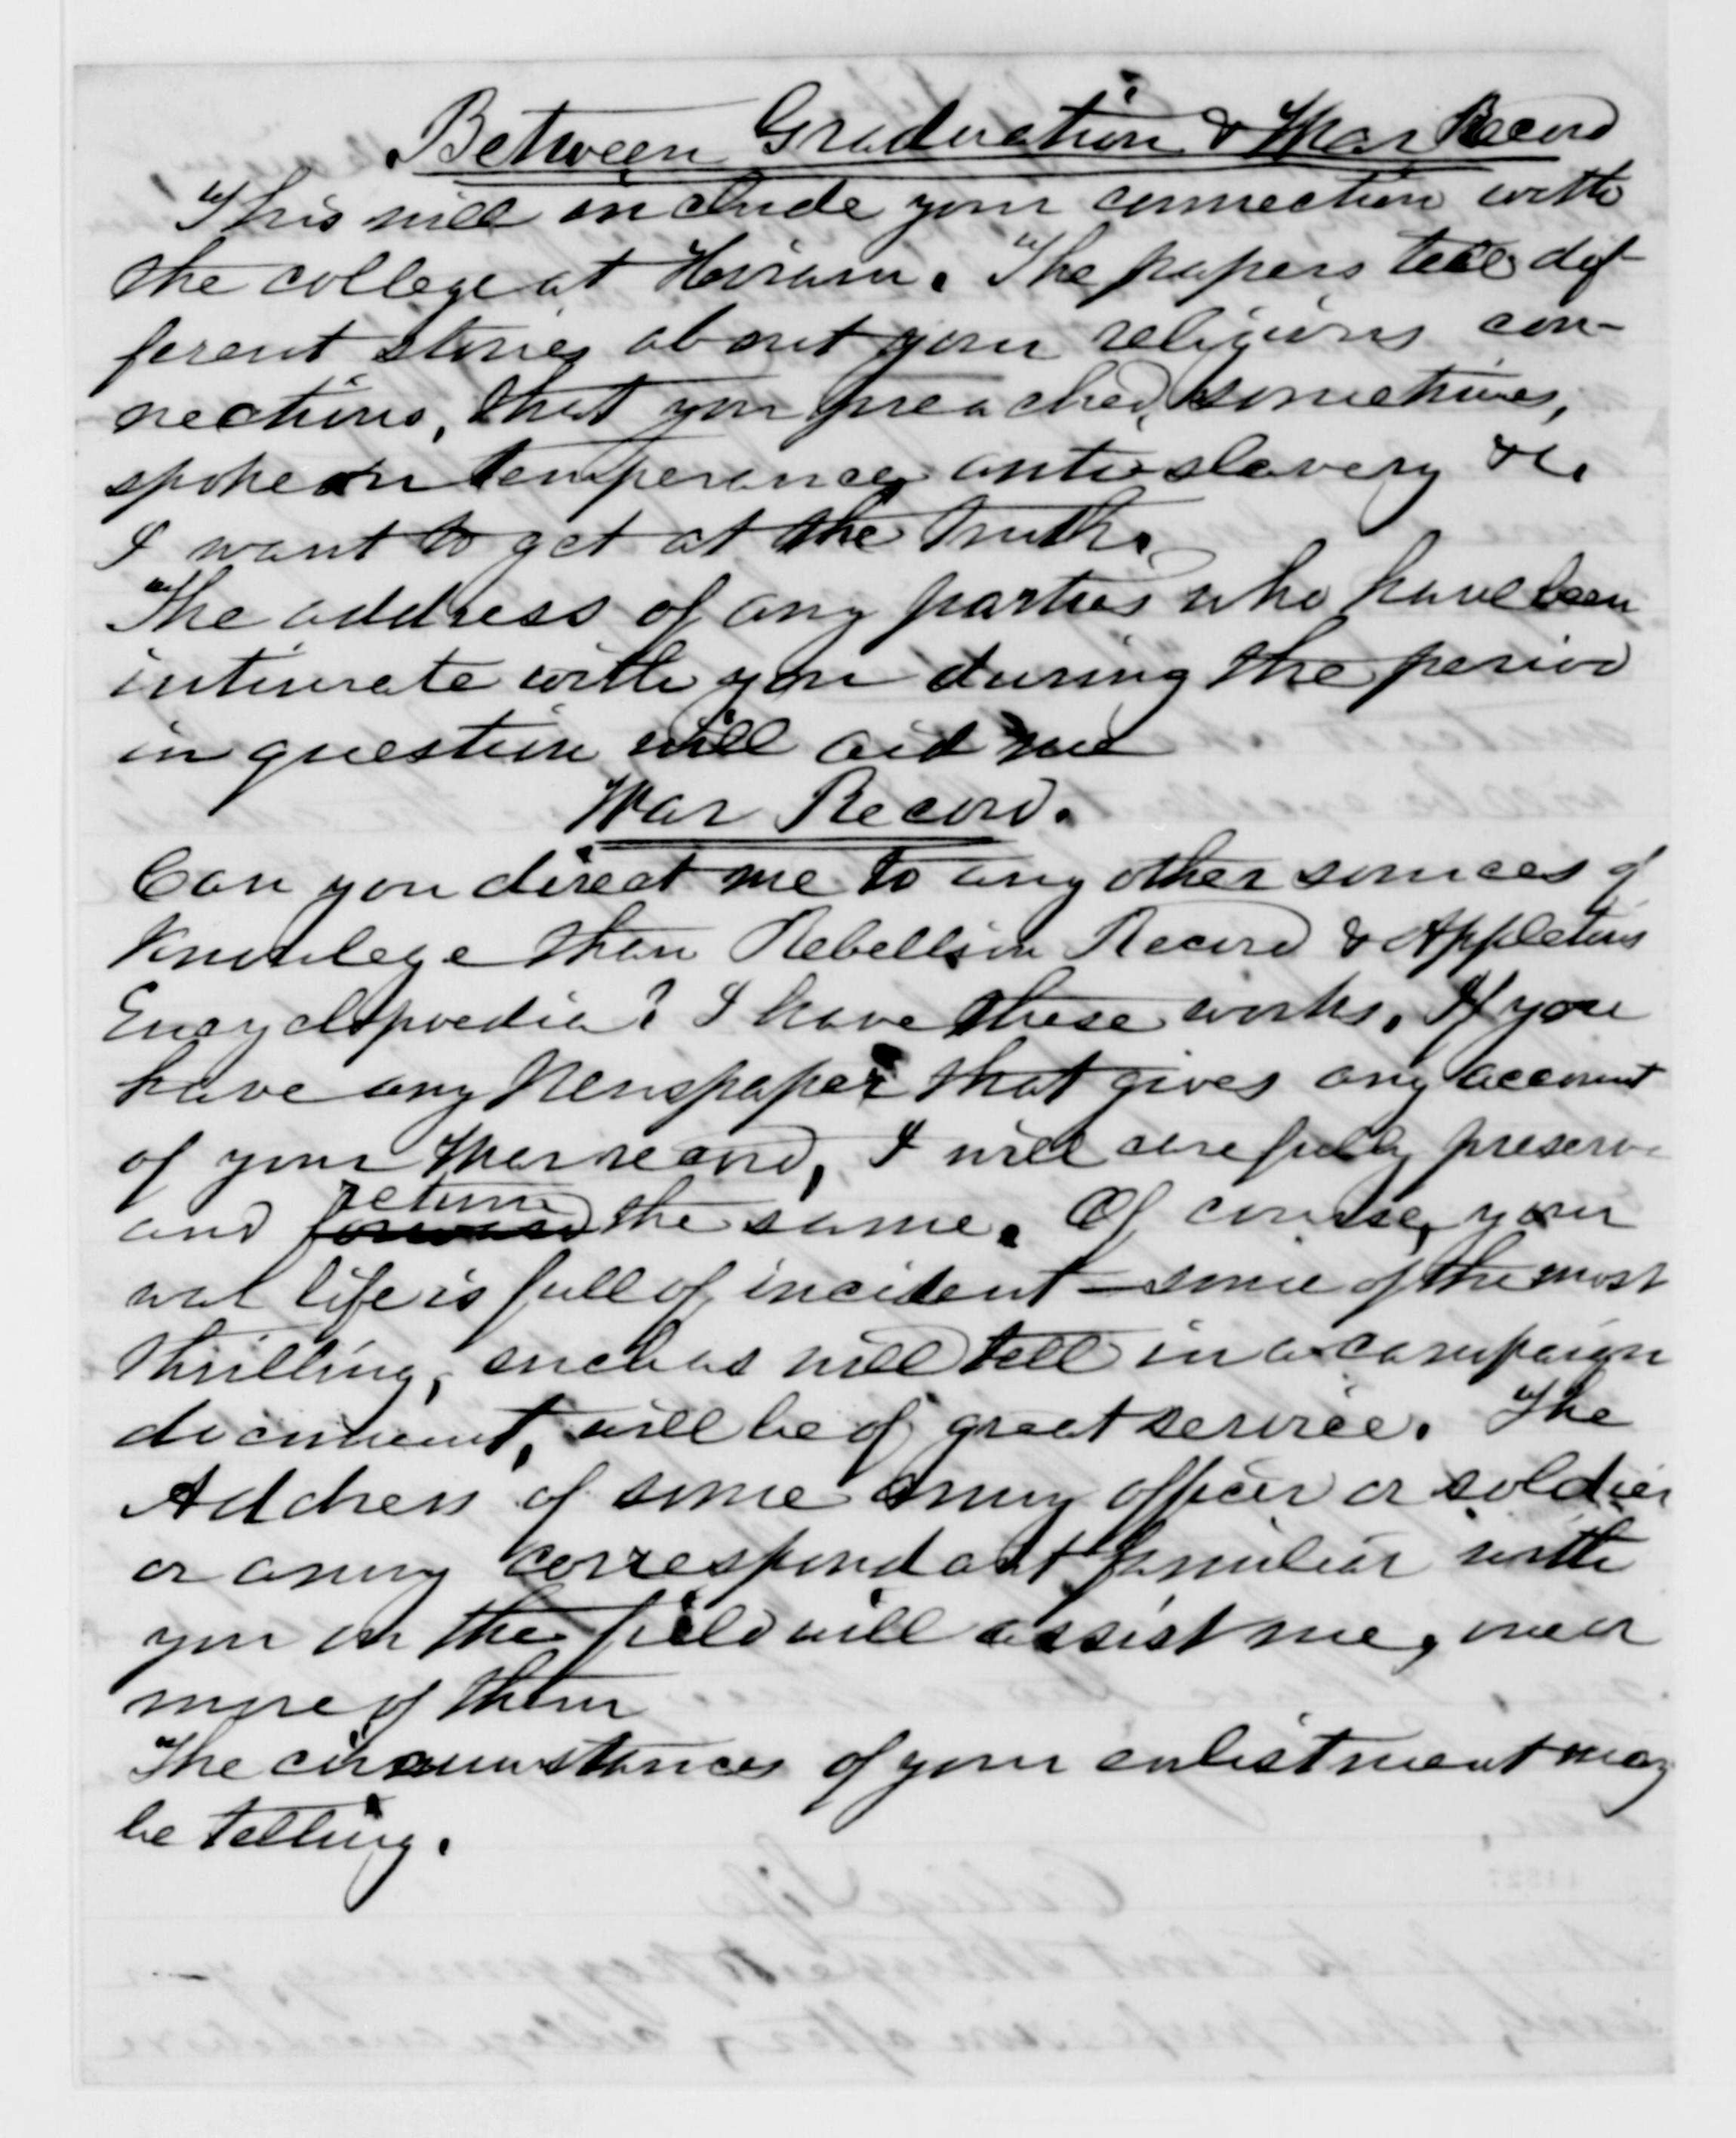 Between Graduation & War Record
This will include your connection with
the college at Hiram. The papers tell dif-
ferent stories about your religious con-
nections, that you preached, sometimes,
spoke on temperance, anti-slavery &c.
I want to get at the truth.
The address of any parties who have been
intimate with you during the period
in question will aid me
War Record.
Can you direct me to any other sources of
Knowlege than Rebellion Record & Appletons
Encyclopoedia? I have these works. If you
have any Newspaper that gives any account
of your War record, I will carefully preserve
and return forward the same. Of course, your
war life is full of incident – some of the most
thrilling, such as will tell in a campaign
document, will be of great service. The
Address of some army officer or soldier
or army correspondant familiar with
you on the field will assist me, one or
more of them
The circumstances of your enlistment may
be telling.